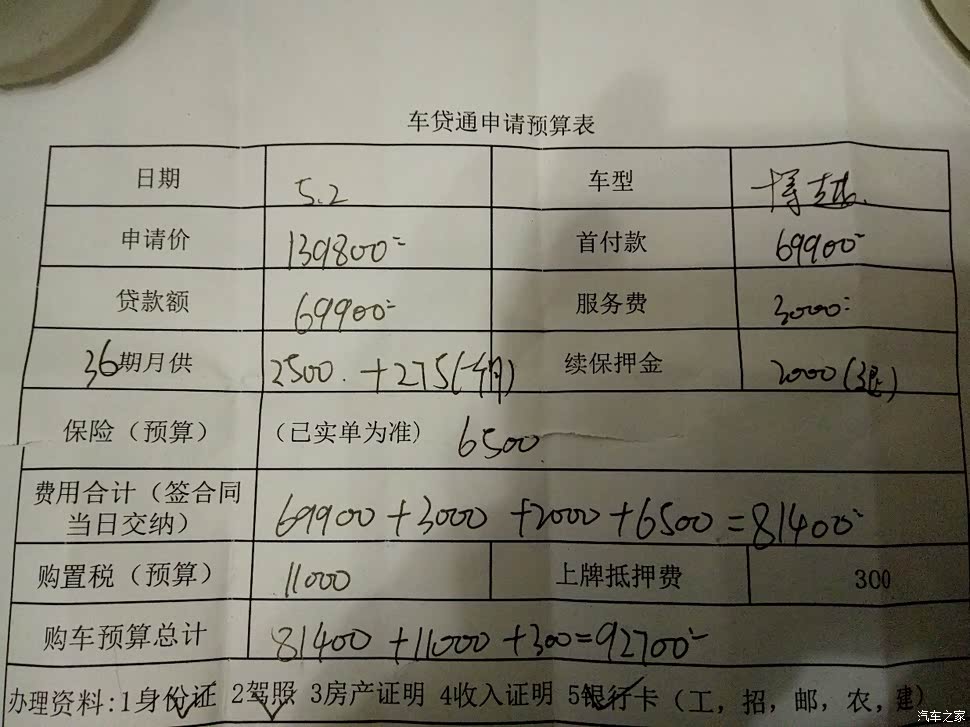 车贷通申请预算表
日期 5.2 车型 博越
申请价 139800- 首付款 69900-
贷款额 69900- 服务费 3000-
36期月供 2500 +275(一个月) 续保押金 2000(退)
保险（预算） （已实单为准） 6500
费用合计（签合同当日交纳） 69900+3000+2000+6500=81400-
购置税（预算） 11000 上牌抵押费 300
购车预算总计 81400+11000+300=92700-
办理资料:1身份证 2驾照 3房产证明 4收入证明 5银行卡（工，招，邮，农，建）
汽车之家